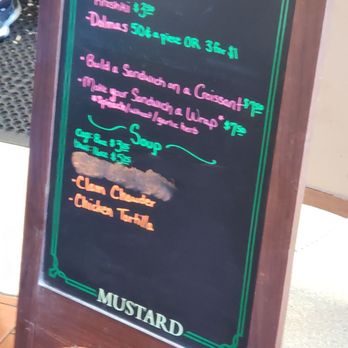 Piroshki $3.50
-Dolmas 50¢ a piece OR 3 for $1
-Build a Sandwich on a Croissant $7.50
-Make your Sandwich a Wrap* $7.50
*Spinach/wheat/garlic herb
Soup
Cup: 8oz $3.50
Bowl: 16oz $5.25
-Clam Chowder
-Chicken Tortilla
MUSTARD